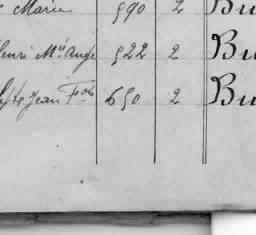 Marie 590 2 Bu
Henri M.ie Ange 522 2 Bu
Jean F.ois 650 2 Bu